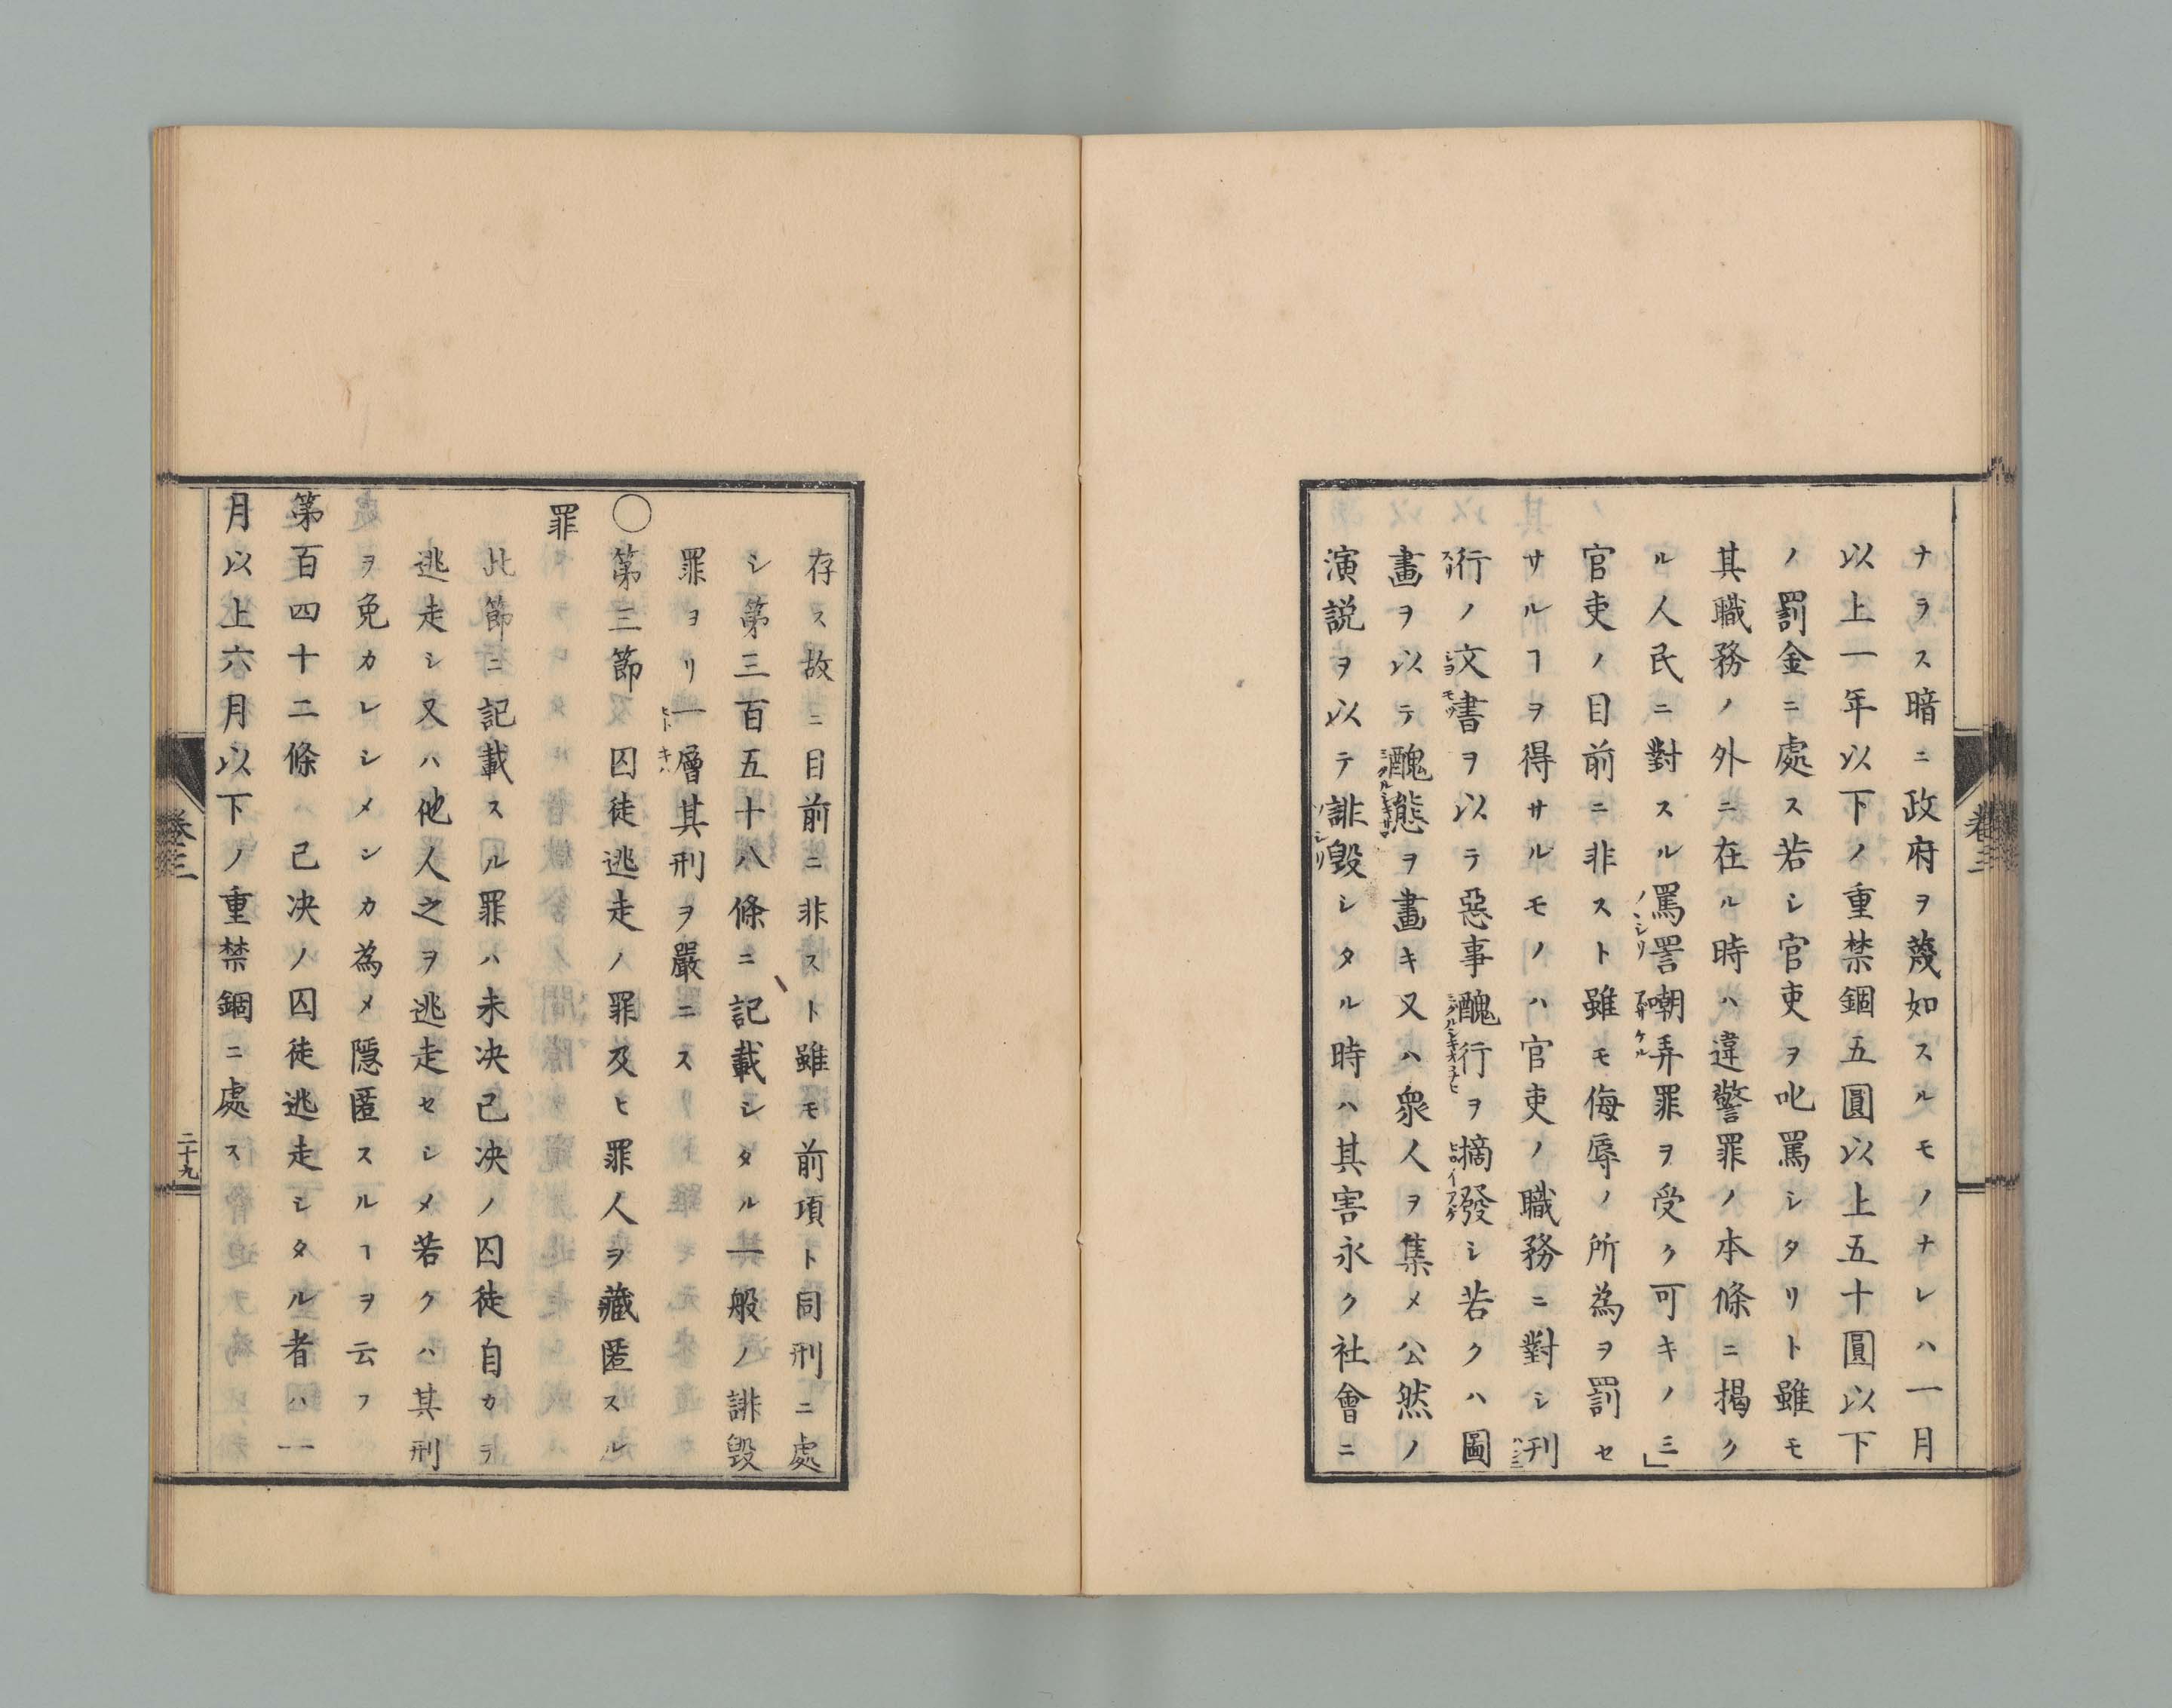 ナラス暗ニ政府ヲ蔑如スルモノナレハ一月
以上一年以下ノ重禁錮五圓以上五十圓以下
ノ罰金ニ處ス若シ官吏ヲ叱罵シタリト雖モ
其職務ノ外ニ在ル時ハ違警罪ノ本條ニ掲ク
ル人民ニ對スル罵詈嘲弄罪ヲ受ク可キノミ」
官吏ノ目前ニ非スト雖モ侮辱ノ所為ヲ罰セ
サルヿヲ得サルモノハ官吏ノ職務ニ對シ刊
行ノ文書ヲ以テ惡事醜行ヲ摘發シ若クハ圖
畫ヲ以テ醜態ヲ畫キ又ハ衆人ヲ集メ公然ノ
演説ヲ以テ誹毀シタル時ハ其害永ク社會ニ
卷三
存ス故ニ目前ニ非スト雖モ前項ト同刑ニ處
シ第三百五十八條ニ記載シタル一般ノ誹毀
罪ヨリ一層其刑ヲ嚴ニス
○第三節 囚徒逃走ノ罪及ヒ罪人ヲ藏匿スル
罪
此節ニ記載スル罪ハ未决已决ノ囚徒自カラ
逃走シ又ハ他人之ヲ逃走セシメ若クハ其刑
ヲ免カレシメンカ為メ隱匿スルヿヲ云フ
第百四十二條ハ已决ノ囚徒逃走シタル者ハ一
月以上六月以下ノ重禁錮ニ處ス
卷三
二十九